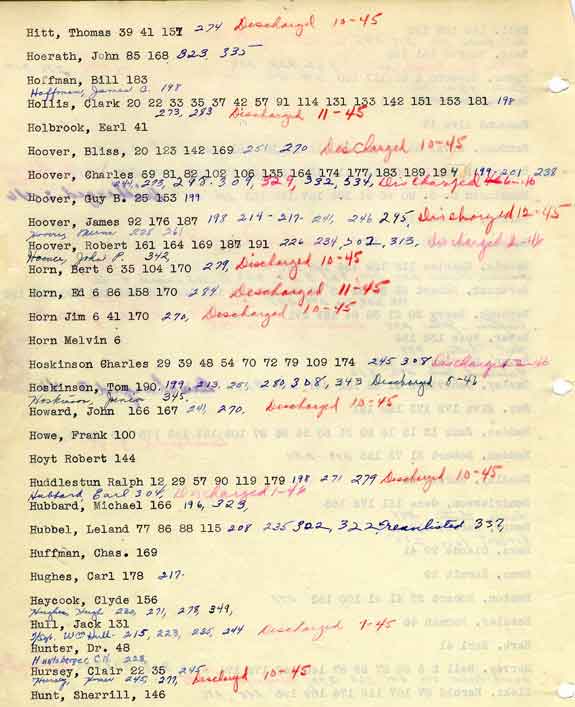 Hitt, Thomas 39 41 157 274 Discharged 10-45
Hoerath, John 85 168 323 335
Hoffman, Bill 183
Hoffman, James C. 198
Hollis, Clark 20 22 33 35 37 42 57 91 114 131 133 142 151 153 181 198
273, 283 Discharged 11-45
Holbrook, Earl 41
Hoover, Bliss, 20 123 142 169 251 270 Discharged 10-45
Hoover, Charles 69 81 82 102 106 135 164 174 177 183 189 194 199, 201 238
241, 293, 295, 309, 329, 332, 334, Discharged
Hoover, Guy B. 25 153 199
Hoover, James 92 176 187 198 214-217 241, 246 295, Discharged 12-45
228 261
Hoover, Robert 161 164 169 187 191 226 234, 302, 313, Discharged 2-46
Hoover, John P. 342
Horn, Bert 6 35 104 170 279, Discharged 10-45
Horn, Ed 6 86 158 170 284 Discharged 11-45
Horn Jim 6 41 170 270, Discharged 10-45
Horn Melvin 6
Hoskinson Charles 29 39 48 54 70 72 79 109 174 245 308 Discharged 2-46
Hoskinson, Tom 190, 199, 213, 251, 280, 308, 343 Discharged 5-46
Hoskinson, Junior 345.
Howard, John 166 167 241, 270, Discharged 10-45
Howe, Frank 100
Hoyt Robert 144
Huddlestun Ralph 12 29 57 90 119 179 198 271 279 Discharged 10-45
Hubbard, Earl 304, Discharged 1-46
Hubbard, Michael 166 196, 323,
Hubbel, Leland 77 86 88 115 208 235 302, 322, reenlisted 337,
Huffman, Chas. 169
Hughes, Carl 178 217-
Haycook, Clyde 156
Hughes Hugh 220, 271, 278, 349,
Hull, Jack 131
Wm Hull- 215, 223, 235, 244 Discharged 9-45
Hunter, Dr. 48
Huntsberger, C.H. 228,
Hursey, Clair 22 35 245
Hursey, 245, 277, Discharged 10-45
Hunt, Sherrill, 146